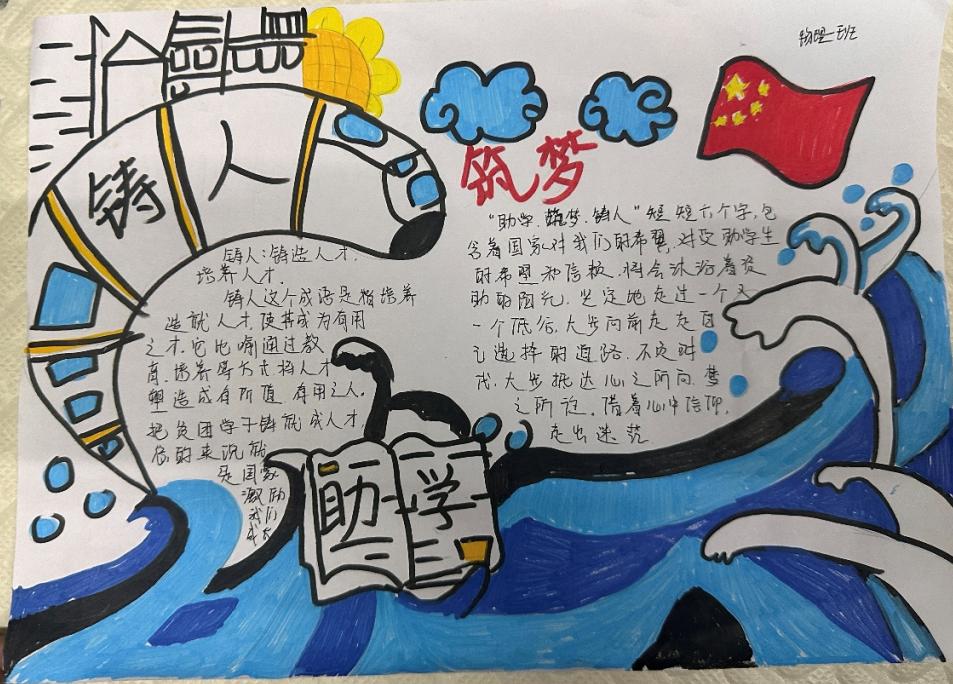 物理一班
铸人
筑梦
铸人:铸造人才,
培养人才.
铸人这个成语是指培养
造就人才,使其成为有用
之才.它比喻通过教
育.培养等方式将人才
塑造成有价值.有用之人.
把贫困学子铸就成人才.
总的来说就
是国家
激励
我们
成长
"助学.筑梦.铸人"短短六个字,包
含着国家对我们的希冀,对受助学生
的希望和信赖.将会沐浴着资
助的阳光.坚定地走过一个又
一个低谷,大步向前走.走自
己选择的道路.不定时
代.大步抵达心之所向.梦
之所往.借着心中信仰.
走出迷茫
助学